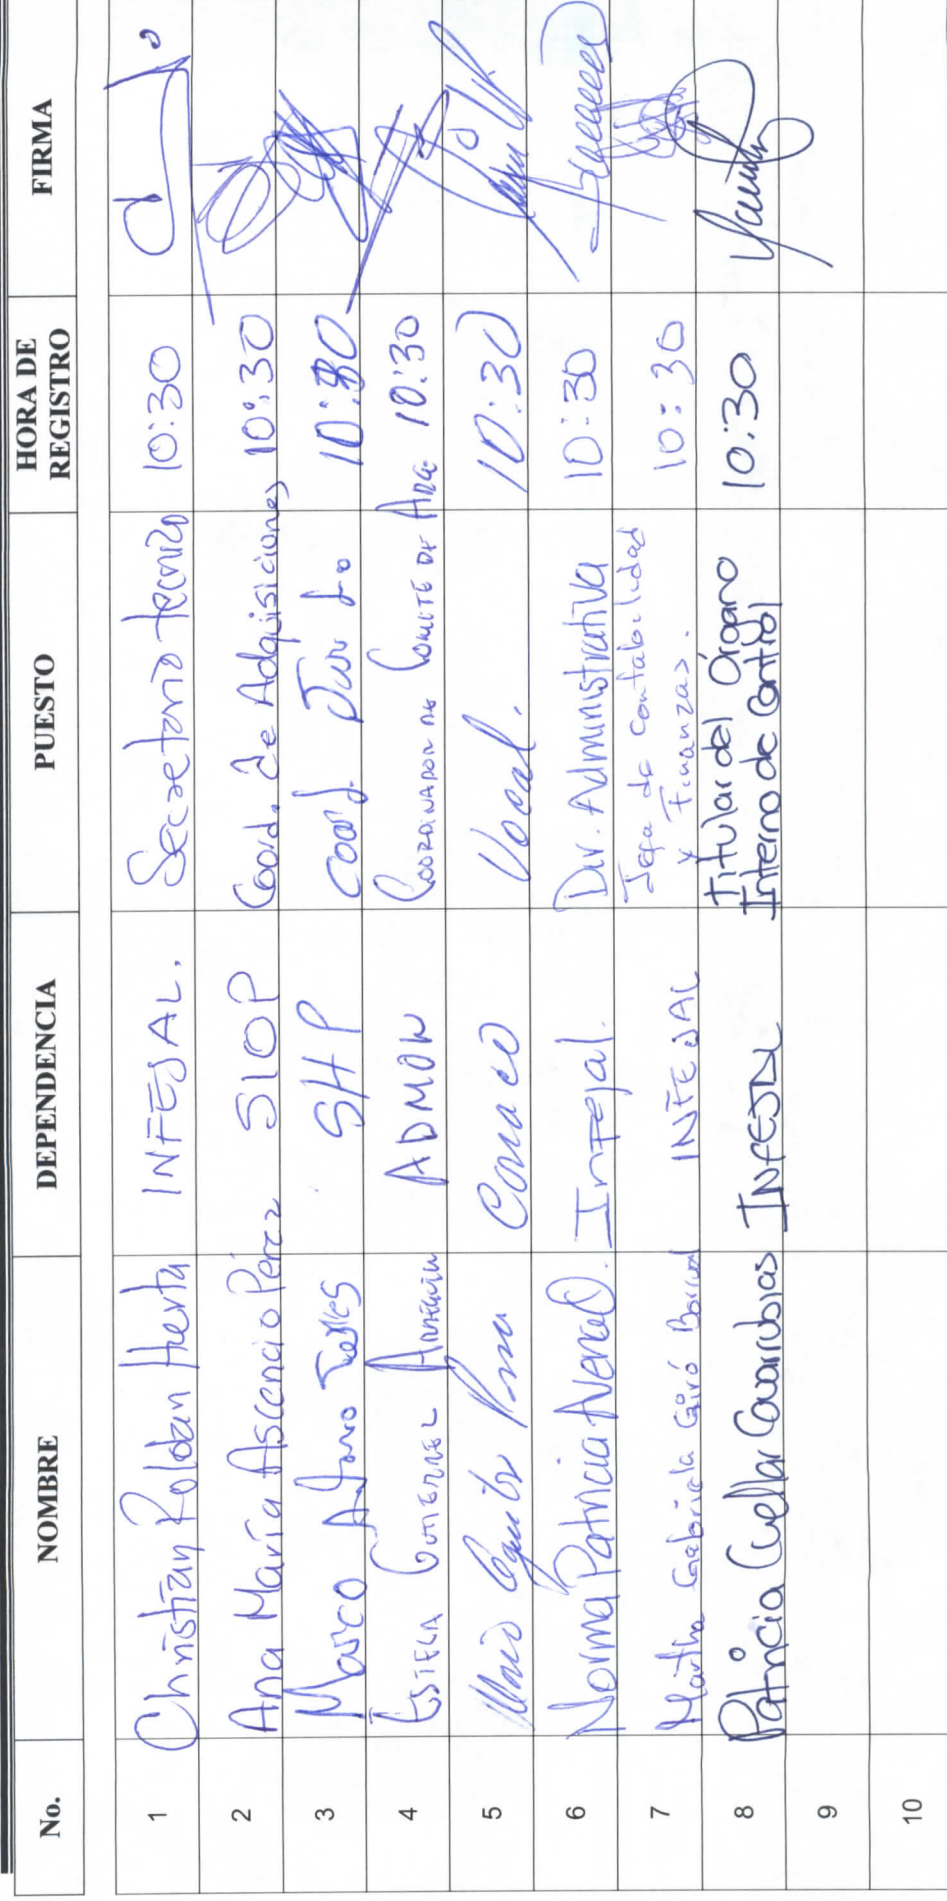 No. NOMBRE DEPENDENCIA PUESTO HORA DE REGISTRO FIRMA
1 Christian Roldan Huerta INFEJAL. Secretario tecnico 10:30
2 Ana María Ascencio Pérez SIOP Coord. de Adquisiciones 10:30
3 Marco SHP Coord. 10:30
4 ESTELA GUTIERREZ ADMON COORDINADOR DE COMITE DE 10:30
5 Vocal. 10:30
6 Norma Patricia Infejal. Dir. Administrativa 10:30
7 Martha Gabriela INFEJAL Jefa de Contabilidad
y Finanzas. 10:30
8 Patricia Cuellar Covarrubias INFEJAL Titular del Órgano
Interno de Control 10:30
9
10